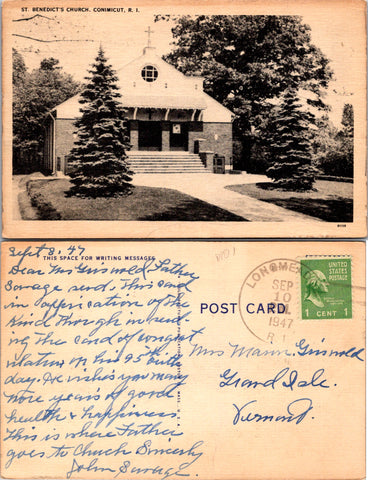 ST. BENEDICT'S CHURCH, CONIMICUT, R. I.
THIS SPACE FOR WRITING MESSAGES
POST CARD
Sept 8, 47
Dear Mrs Griswold, Father
Savage send. This card
in apprication of the
kind though in send-
ing the card of congrat
ulation on his 95 birth
day. He wishes you many
more years of good
health & happiness.
This is where Father
goes to Church Sincerly
John Savage.
SEP
10
1947
R. I.
UNITED STATES
POSTAGE
1 CENT 1
Mrs Griswold
Grand Isle.
Vermont.